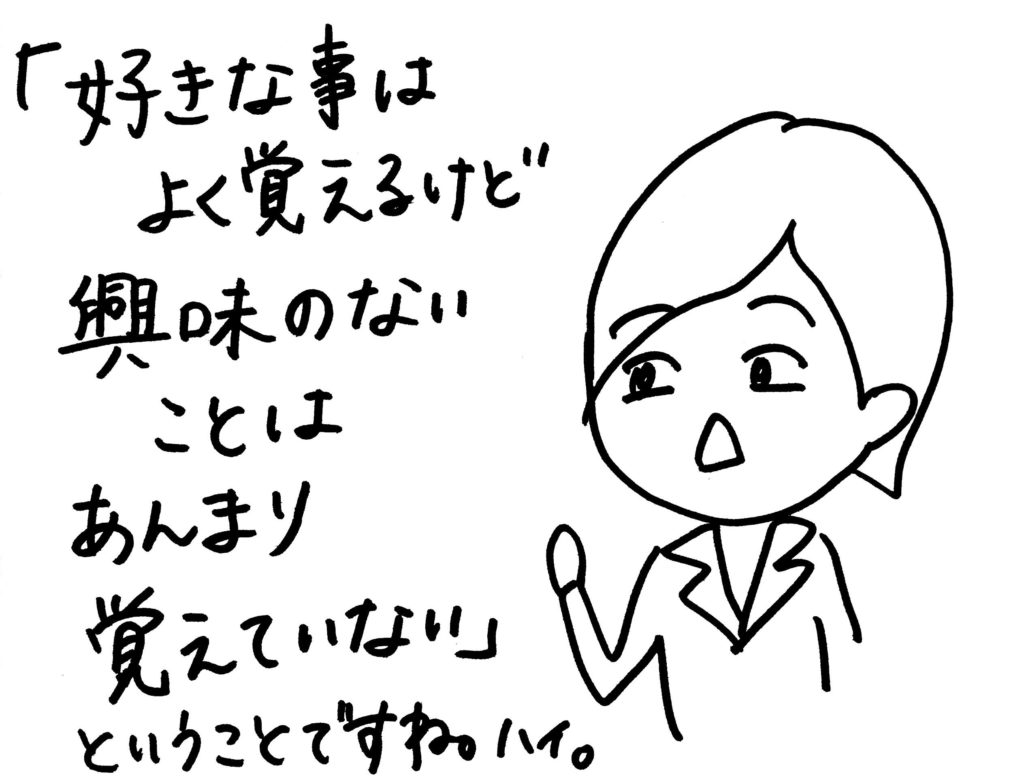 「好きな事は
よく覚えるけど
興味のない
ことは
あんまり
覚えていない」
ということですね。ハイ。